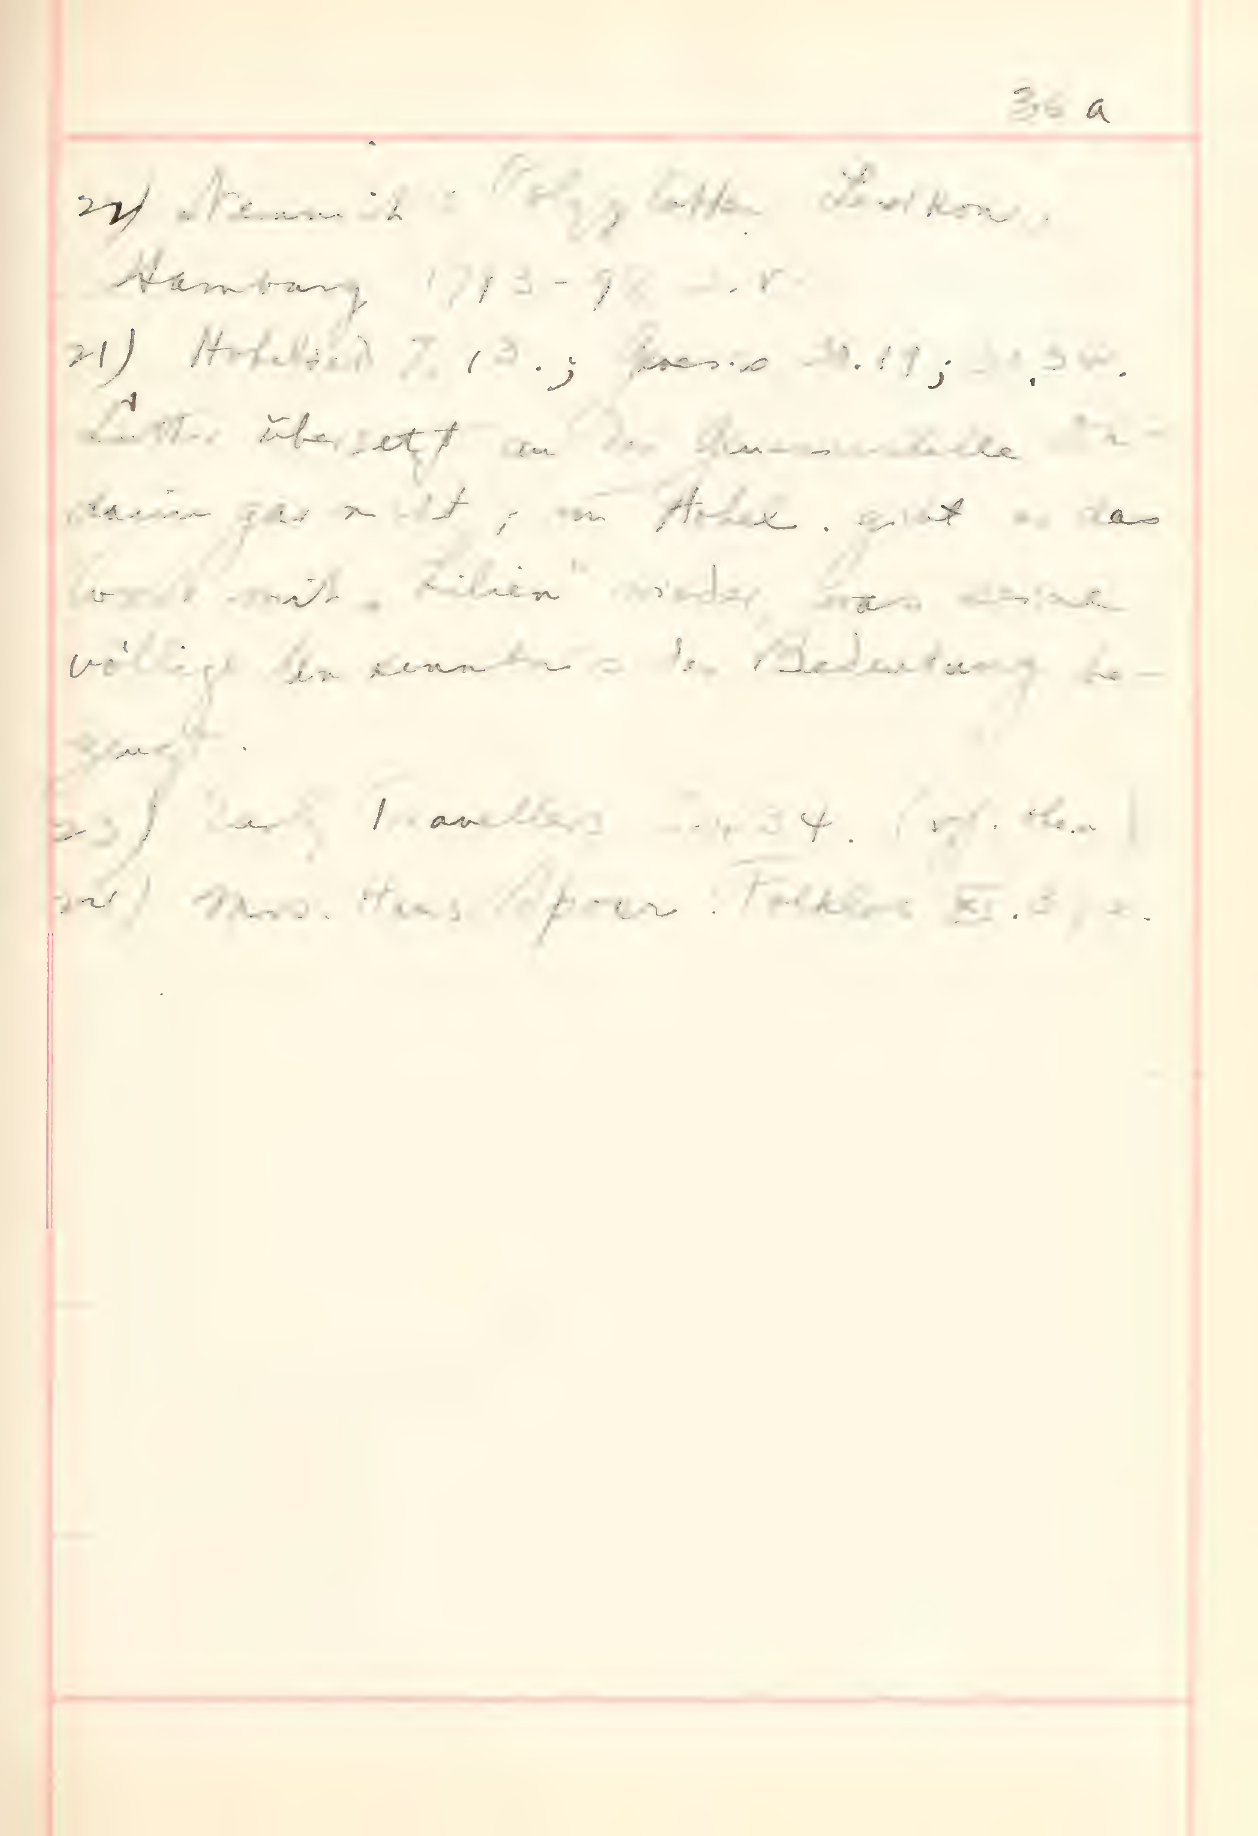 36 a
22) Nemnich: Polyglotten Lexikon,
Hamburg 1793-98 s.v.
21) Hohelied 7.13.; Genesis 30.14;
Luther übersetzt an der Genesisstelle Du-
daim gar nicht; im Hohel. gibt er das
Wort mit „Lilien" wieder, was seine
völlige Unkenntnis der Bedeutung be-
zeugt.
23) Early Travellers 34. (cf. oben)
24) Mrs. Hans Spoer: Folklore